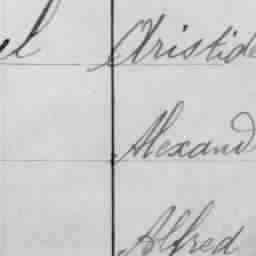 Aristide
Alexand
Alfred